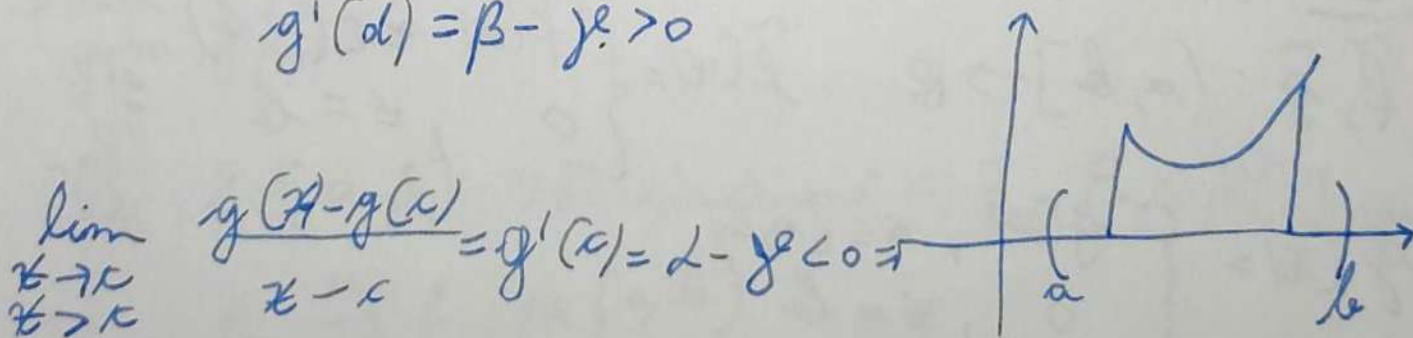 g'(d) = β - γ > 0
lim x→c x>c (g(x) - g(c))/(x - c) = g'(c) = α - γ < 0 ⇒
a b